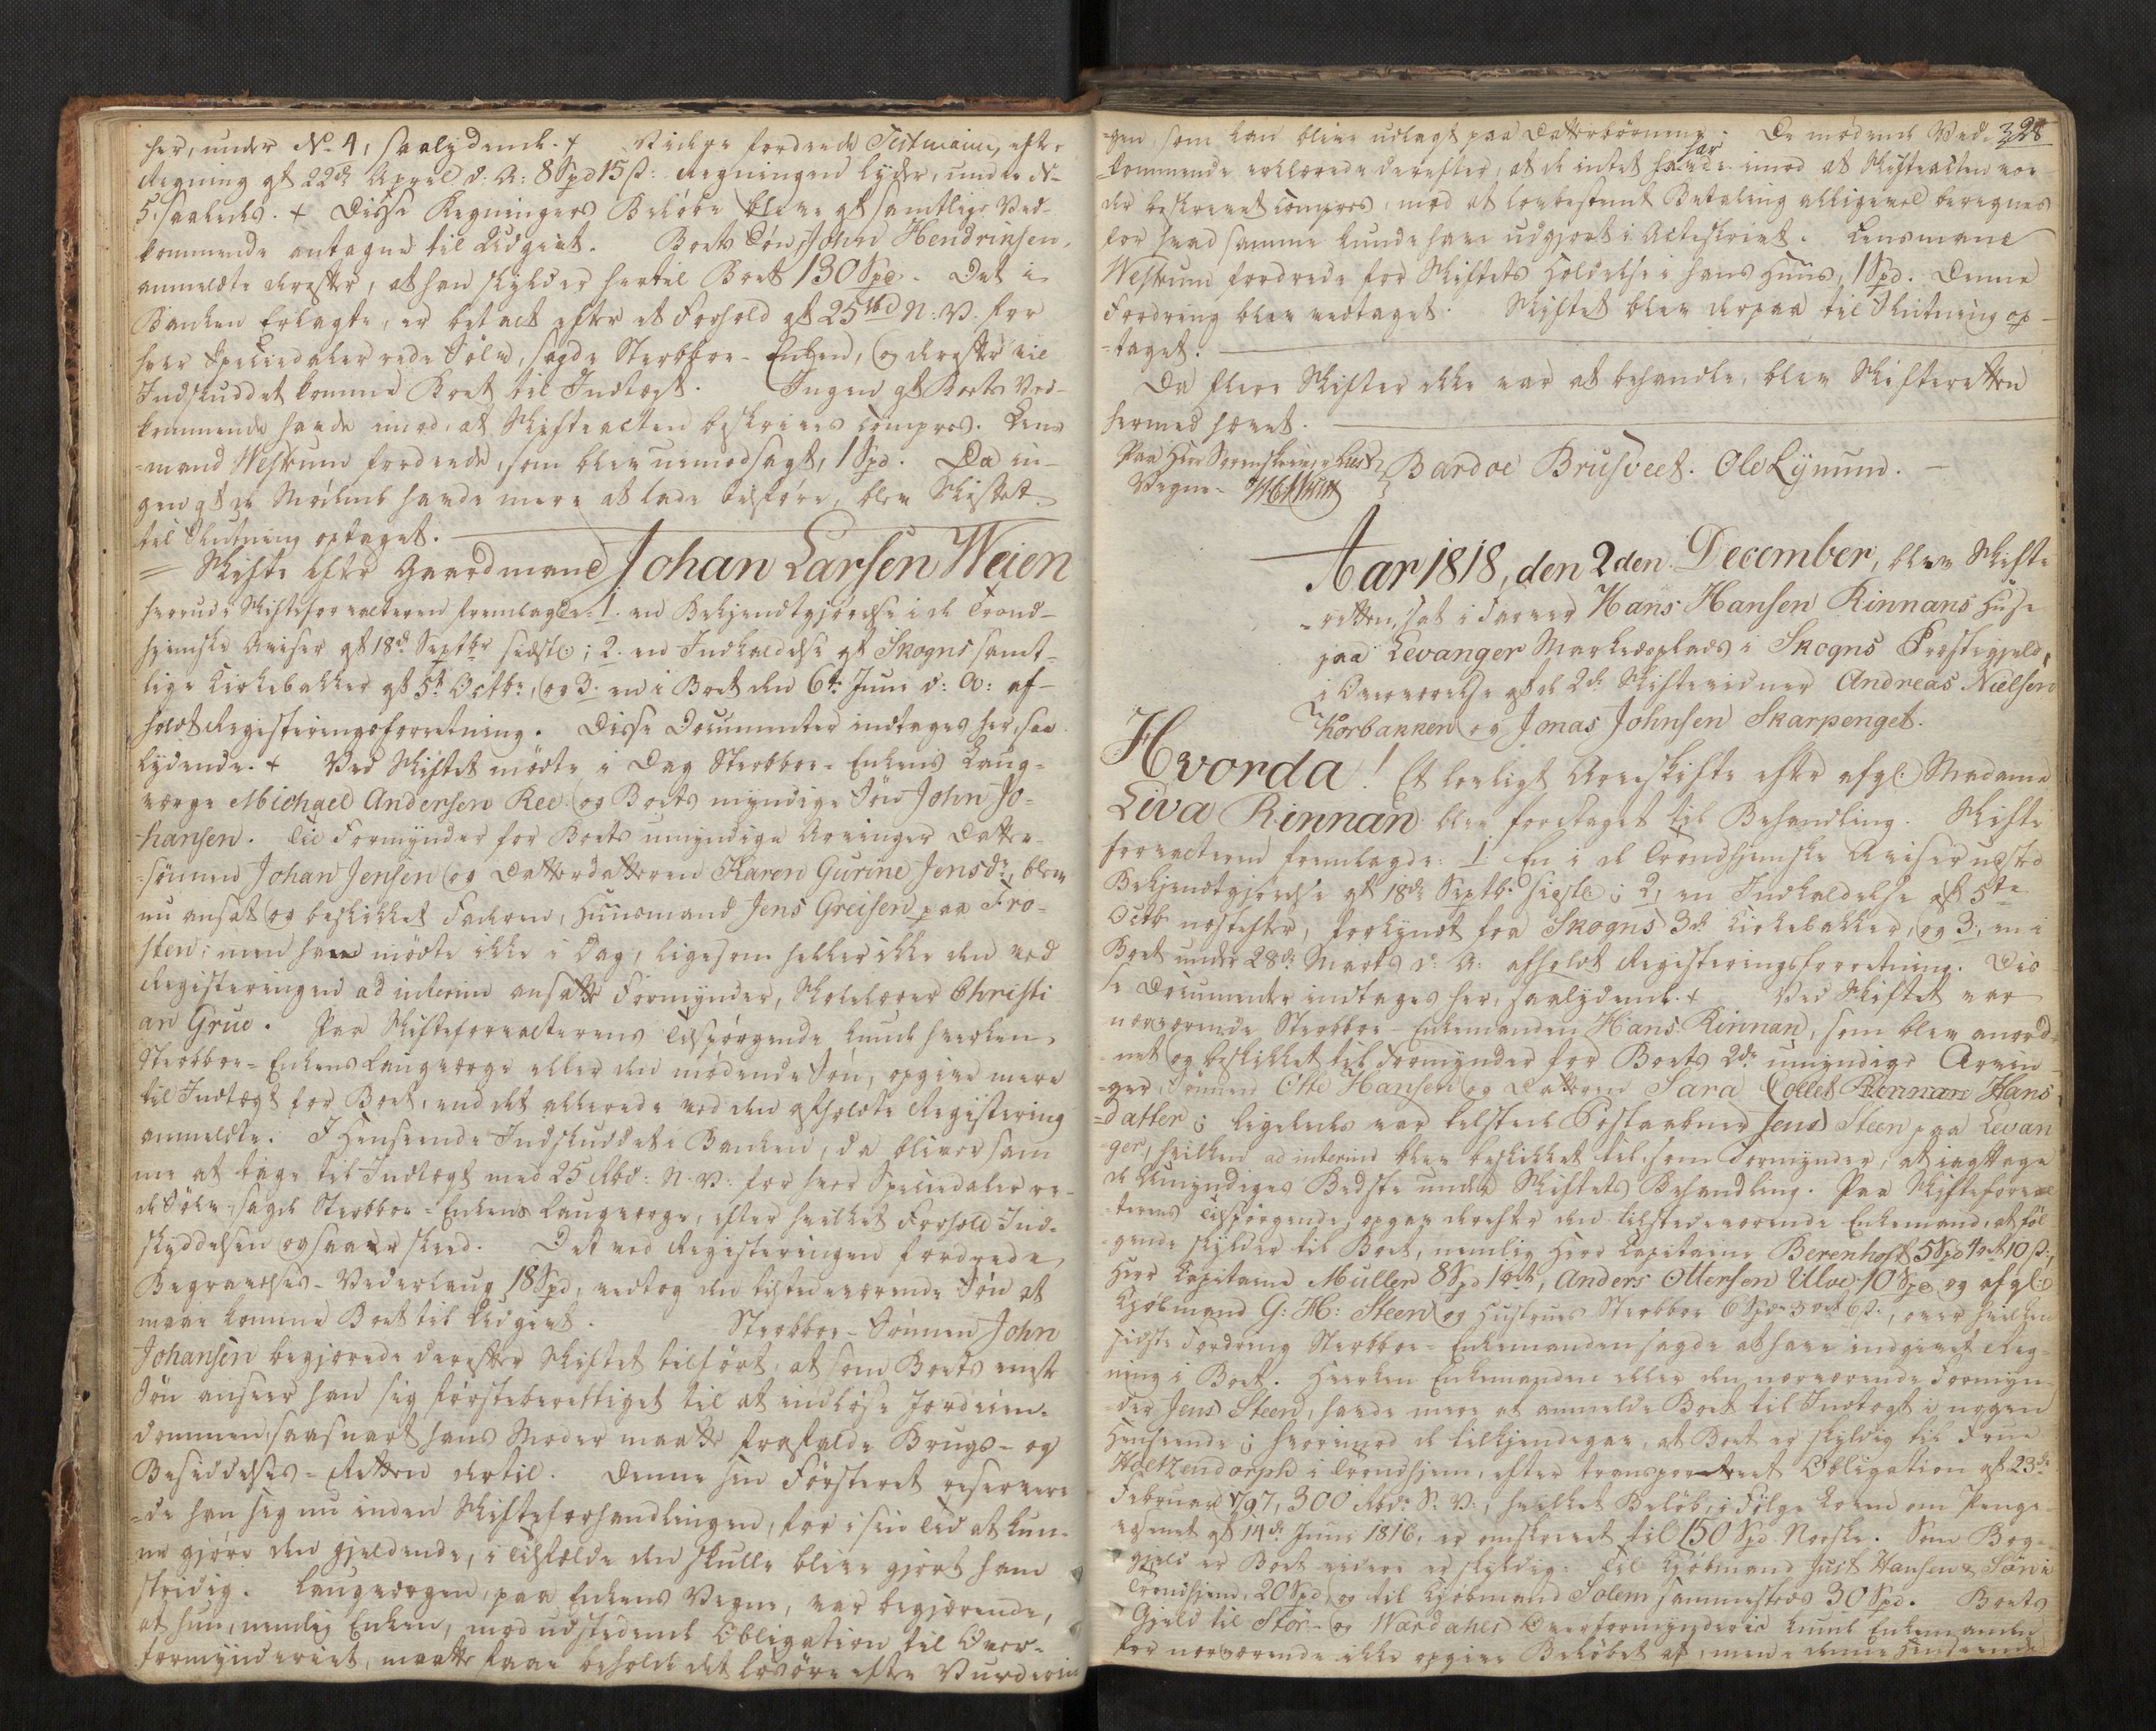 her, under No 4, saalydende. + Videre fordrede Testmaiin, efter
Regning af 22de April d: A: 8 Spd 15 s: Regningen lyder, under No
5. saaledes. + Disse Regningers Beløbe bleve af samtlige Ved-
kommende antagne til Udgivt. Boets Søn, John Hendrichsen,
anmeldte derefter, at han skylder hertil Boet 130 Spd. Det i
Banken Erlagte, er betalt efter et Forhold af 25 rbd N: V: for
hver Speciedaler rede Sølv, sagde Sterbboe-Enken, og derefter vil
Indskuddet komme Boet til Indtægt. Ingen af Boets Ved-
kommende havde imod, at Skifteacten beskrives compres. Lens
=mand Westrum fordrede, som blev uimodsagt, 1 Spd. Da in-
gen af de Mødende havde mere at lade tilføre, blev Skiftet
til Slutning optaget.
= Skifte efter Gaardmand Johan Larsen Weien
herunde Skifteforvalteren fremlagde: 1. en Bekjendtgjørelse i de Trond-
hjemske Aviser af 18de Septbr sidstl:; 2. en Indkaldelse af Skogns samt-
lige Kirkebakker af 5te Octbr, og 3. en i Boet den 6te Juni d: A: af-
holdt Registeringsforretning. Disse Documenter indtages her, saa
lydende. + Ved Skiftet mødte i Dag Sterbboe-Enkens Laug-
værge Michael Andersen Ree og Boets myndige Søn John Jo-
hansen. Til Formynder for Boets umyndige Arvinger Datter-
sønnen Johan Jensen og Datterdatteren Karen Gurine Jensdr, blev
nu ansat og beskikket Faderen, Huusmand Jens Greisen paa Fro-
sten; men han mødte ikke i Dag, ligesom heller ikke den ved
Registeringen ad interim ansatte Formynder, Skolelærer Christi
an Grue. Paa Skifteforvalterens Tilspørgende kunde hverken
Sterbboe-Enkens Laugværge eller den mødende Søn, opgive mere
til Indtægt for Boet, end det allerede ved den afholdte Registering
anmeldte. I Henseende Indskuddet i Banken, da bliver sam
me at tage til Indtægt med 25 Rbd: N: V: for hver Speciedaler re-
de Sølv, sagde Sterbboe-Enkens Laugværge, efter hvilket Forhold Ind-
skydelsen ogsaa er skeed. Det ved Registeringen fordrede
Begravelses-Vederlaug 18 Spd, vedtog den tilstedeværende Søn at
maae komme Boet til Udgivt. Sterbboe-Sønnen John
Johansen begjærede derefter Skiftet tilført, at som Boets eneste
Søn anseer han sig førsteberettiget til at indløse Jordeien-
dommen, saasnart hans Moder maatte frafalde Brugs- og
Besiddelses-Retten dertil. Denne sin Førsteret reservere
=de han sig nu inden Skifteforhandlingen, for i sin Tid at kun-
ne gjøre den gjeldende, i Tilfælde den skulle blive gjort ham
stridig. Laugværgen, paa Enkens Vegne, var begjærende,
at hun, nemlig Enken, mod udstedende Obligation til Over-
formynderiet, maatte faae beholde det Løsøre efter Vurderin
328
=gen, som kan blive udlagt paa Datterbørnene. De mødende Ved-
=kommende erklærede derefter, at de intet havde imod at Skifteacten vor-
der beskrevet compres, mod at lovbestemt Betaling alligevel beregnes
for hvad samme kunde have udgjort i Acteskrivt. Lensmand
Westrum fordrede for Skiftets Holdelse i hans Huus, 1 Spd. Denne
Fordring blev vedtaget. Skiftet blev derpaa til Slutning op-
=taget.
Da flere Skifter ikke var at behandle, blev Skifteretten
hermed hævet.
Paa Herr Sorenskriver Lies
Vegne. Bardoe Brusveet. Ole Lynum.
Aar 1818, den 2den December, blev Skifte
=retten, sat i Farver Hans Hansen Rinnans Huse
paa Levanger Markedsplads i Skogns Præstegjeld,
i Overværelse af de 2de Skiftevidner Andreas Nielsen
Korbakken og Jonas Johnsen Skarpenget.
Hvorda! Et lovligt Arveskifte efter afgl: Madame
Liva Rinnan blev foretaget til Behandling. Skifte
forvalteren fremlagde: 1. En i de Trondhjemske Aviser udsted
Bekjendtgjørelse af 18de Septbr sidstl:; 2, en Indkaldelse af 5te
Octbr næstefter, forkyndt fra Skogns 3de Kirkebakker, og 3, en i
Boet under 28de Marts d: A: afholdt Registeringsforretning. Dis
se Documenter indtages her, saalydende. + Ved Skiftet var
nærværende Sterbboe-Enkemanden Hans Rinnan, som blev anord-
net og beskikket til Formynder for Boets 2de umyndige Arvin-
=ger, Sønnen Otte Hansen og Datteren Sara Collet Rennan Hans-
=datter; ligeledes var tilstede Postaabner Jens Steen paa Levan
ger, hvilken ad interim blev beskikket til, som Formynder, at iagttage
de Umyndiges Bedste under Skiftets Behandling. Paa Skifteforval
terens Tilspørgende, opgav derefter den tilstedeværende Enkemand, at føl
gende skylder til Boet, nemlig Herr Capitaine Berenhoft 5 Spd 4 ort 10 s:,
Herr Capitaine Müller 8 Spd 1 ort, Anders Ottersen Ulve 10 Spd og afgl:
Kjøbmand G: H: Steen og Hustrues Sterbboe 6 Spd 3 ort 6 s:, over hvilken
sidste Fordring Sterbboe-Enkemanden sagde at have indgivet Reg-
ning i Boet. Hverken Enkemanden eller den nærværende Formyn-
der Jens Steen, havde mere at anmelde Boet til Indtægt i nogen
Henseende; hvorimod de tilkjendegav, at Boet er skyldig til Frue
Holtzendorph i Trondhjem, efter transporteret Obligation af 23de
Februar 1797, 300 Rbd: S: V:, hvilket Beløb, i Følge Loven om Penge-
væsenet af 14de Juni 1816, er omskrevet til 150 Spd Norske. Som Bog-
gjeld er Boet videre er skyldig: til Kjøbmand Just Hansen & Søn i
Trondhjem, 20 Spd, og til Kjøbmand Solem sammesteds 30 Spd. Boets
Gjeld til Stør- og Værdahls Overformynderie kunde Enkemanden
for nærværende ikke opgive Beløbet af, men i denne Henseende